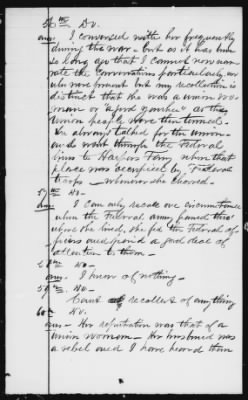 56th Do.
Ans. I conversed with her frequently
during the war - but as it was here
so long ago that I cannot now nar-
rate the conversations particularly, or
who were present but my recollection is
distinct that she was a union wo-
man - or "good yankee" as the
Union people were then termed.
She always talked for the union -
and went through the Federal
lines to Harpers Ferry when that
place was occupied by Federal
troops - whenever she chose. -
57th Do -
Ans. I can only recall one circumstance
when the Federal army passed
where she lived, she fed the Federal of-
ficers and paid a good deal of
attention to them -
58th Do -
Ans. I know of nothing -
59th Do.
Cannot recollect of anything
60th Do.
Ans - Her reputation was that of a
Union woman - Her husband was
a rebel and I have heard them